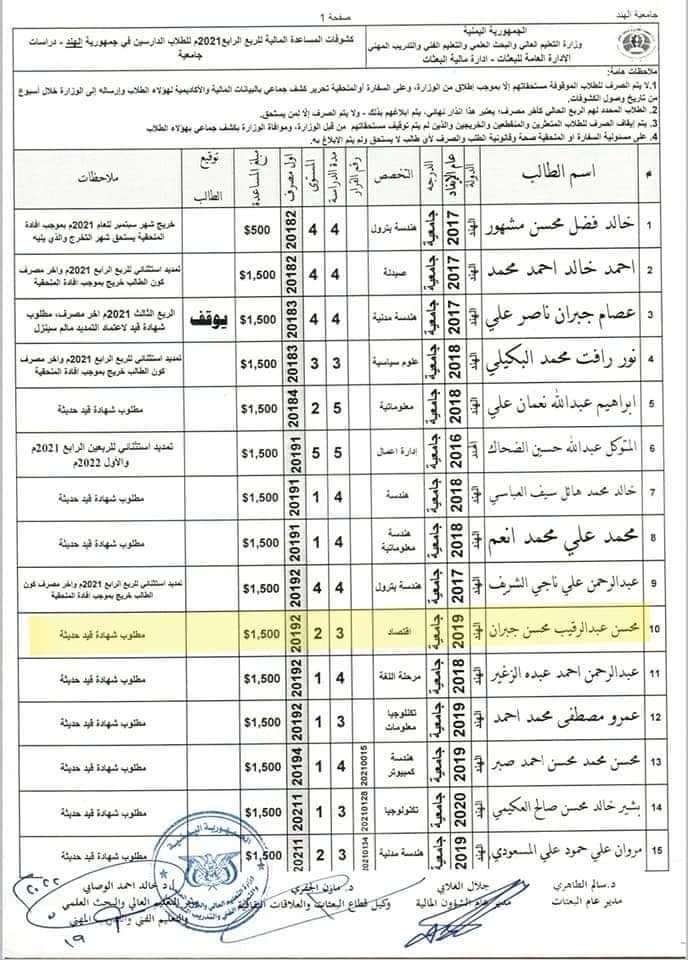 جامعية الهند
صفحة 1
الجمهورية اليمنية
وزارة التعليم العالي والبحث العلمي والتعليم الفني والتدريب المهني
الإدارة العامة للبعثات - ادارة مالية البعثات
كشوفات المساعدة المالية للربع الرابع2021م للطلاب الدارسين في جمهورية الهند - دراسات جامعية
ملاحظات هامة:
1.لا يتم الصرف للطلاب الموقوفة مستحقاتهم إلا بموجب إطلاق من الوزارة، وعلى السفارة أوالملحقية تحرير كشف جماعي بالبيانات المالية والأكاديمية لهؤلاء الطلاب وإرساله إلى الوزارة خلال أسبوع
من تاريخ وصول الكشوفات.
2. الطلاب المحدد لهم الربع الحالي كآخر مصرف؛ يعتبر هذا انذار نهائي، يتم ابلاغهم بذلك - ولا يتم الصرف إلا لمن يستحق.
3. يتم إيقاف الصرف للطلاب المتعثرين والمنقطعين والخريجين والذين لم يتم توقيف مستحقاتهم من قبل الوزارة، وموافاة الوزارة بكشف جماعي بهؤلاء الطلاب
4. على مسئولية السفارة او الملحقية صحة وقانونية الطلب والصرف لأي طالب لا يستحق ولم يتم الابلاغ به.
# اسم الطالب الدولة عام الإيفاد الدرجه التخصص رقم القرار مدة الدراسة المستوى اول مصرف مبلغ المساعدة توقيع الطالب ملاحظات
1 خالد فضل محسن مشهور الهند 2017 جامعية هندسة بترول 4 4 20182 $500 خريج شهر سبتمبر للعام 2021م بموجب افادة الملحقية يستحق شهر التخرج والذي يليه
2 احمد خالد احمد محمد الهند 2017 جامعية صيدلة 4 4 20182 $1,500 تمديد استثنائي للربع الرابع 2021م واخر مصرف كون الطالب خريج بموجب افادة الملحقية
3 عصام جبران ناصر علي الهند 2017 جامعية هندسة مدنية 4 4 20183 $1,500 يوقف الربع الثالث 2021م اخر مصرف، مطلوب شهادة قيد لاعتماد التمديد مالم سينزل
4 نور رافت محمد البكيلي الهند 2018 جامعية علوم سياسية 3 3 20183 $1,500 تمديد استثنائي للربع الرابع 2021م واخر مصرف كون الطالب خريج بموجب افادة الملحقية
5 ابراهيم عبدالله نعمان علي الهند 2018 جامعية معلوماتية 5 2 20184 $1,500 مطلوب شهادة قيد حديثة
6 المتوكل عبدالله حسين الضحاك الهند 2016 جامعية إدارة اعمال 5 5 20191 $1,500 تمديد استثنائي للربعين الرابع 2021م والأول 2022م
7 خالد محمد هائل سيف العباسي الهند 2018 جامعية هندسة 4 1 20191 $1,500 مطلوب شهادة قيد حديثة
8 محمد علي محمد انعم الهند 2018 جامعية هندسة معلوماتية 4 1 20191 $1,500 مطلوب شهادة قيد حديثة
9 عبدالرحمن علي ناجي الشرف الهند 2017 جامعية هندسة بترول 4 4 20192 $1,500 تمديد استثنائي للربع الرابع 2021م واخر مصرف كون الطالب خريج بموجب افادة الملحقية
10 محسن عبدالرقيب محسن جبران الهند 2019 جامعية اقتصاد 3 2 20192 $1,500 مطلوب شهادة قيد حديثة
11 عبدالرحمن احمد عبده الزغير الهند 2018 جامعية مرحلة اللغة 4 1 20192 $1,500 مطلوب شهادة قيد حديثة
12 عمرو مصطفى محمد احمد الهند 2019 جامعية تكنلوجيا معلومات 3 1 20192 $1,500 مطلوب شهادة قيد حديثة
13 محسن محمد محسن احمد صبر الهند 2019 جامعية هندسة كمبيوتر 20210015 4 1 20194 $1,500 مطلوب شهادة قيد حديثة
14 بشير خالد محسن صالح العكيمي الهند 2020 جامعية تكنولوجيا 20210128 3 1 20211 $1,500 مطلوب شهادة قيد حديثة
15 مروان علي حمود علي المسعودي الهند 2019 جامعية هندسة مدنية 20210134 3 2 20211 $1,500 مطلوب شهادة قيد حديثة
د.سالم الطاهري
مدير عام البعثات
جلال الغلابي
مدير عام الشؤون المالية
د. مازن الجفري
وكيل قطاع البعثات والعلاقات الثقافية
أ.د خالد احمد الوصابي
وزير التعليم العالي والبحث العلمي
والتعليم الفني والتدريب المهني
الجمهورية اليمنية